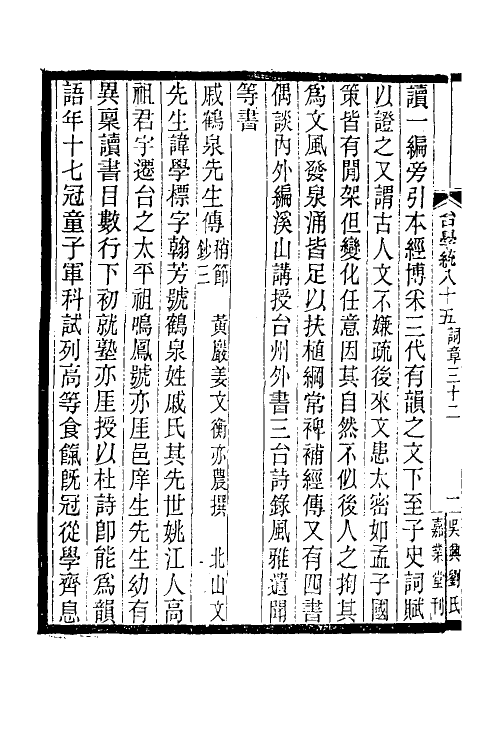 台學統八十五 詞章三十二 一 吳興劉氏
嘉業堂刊
讀一編旁引本經博采三代有韻之文下至子史詞賦
以證之又謂古人文不嫌疏後來文患太密如孟子國
策皆有閒架但變化任意因其自然不似後人之拘其
爲文風發泉涌皆足以扶植綱常裨補經傳又有四書
偶談內外編溪山講授台州外書三台詩錄風雅遺聞
等書
戚鶴泉先生傳稍節 黃巖姜文衡亦農撰 北山文
鈔三
先生諱學標字翰芳號鶴泉姓戚氏其先世姚江人高
祖君宇遷台之太平祖鳴鳳號亦厓邑庠生先生幼有
異稟讀書目數行下初就塾亦厓授以杜詩卽能爲韻
語年十七冠童子軍科試列高等食餼旣冠從學齊息